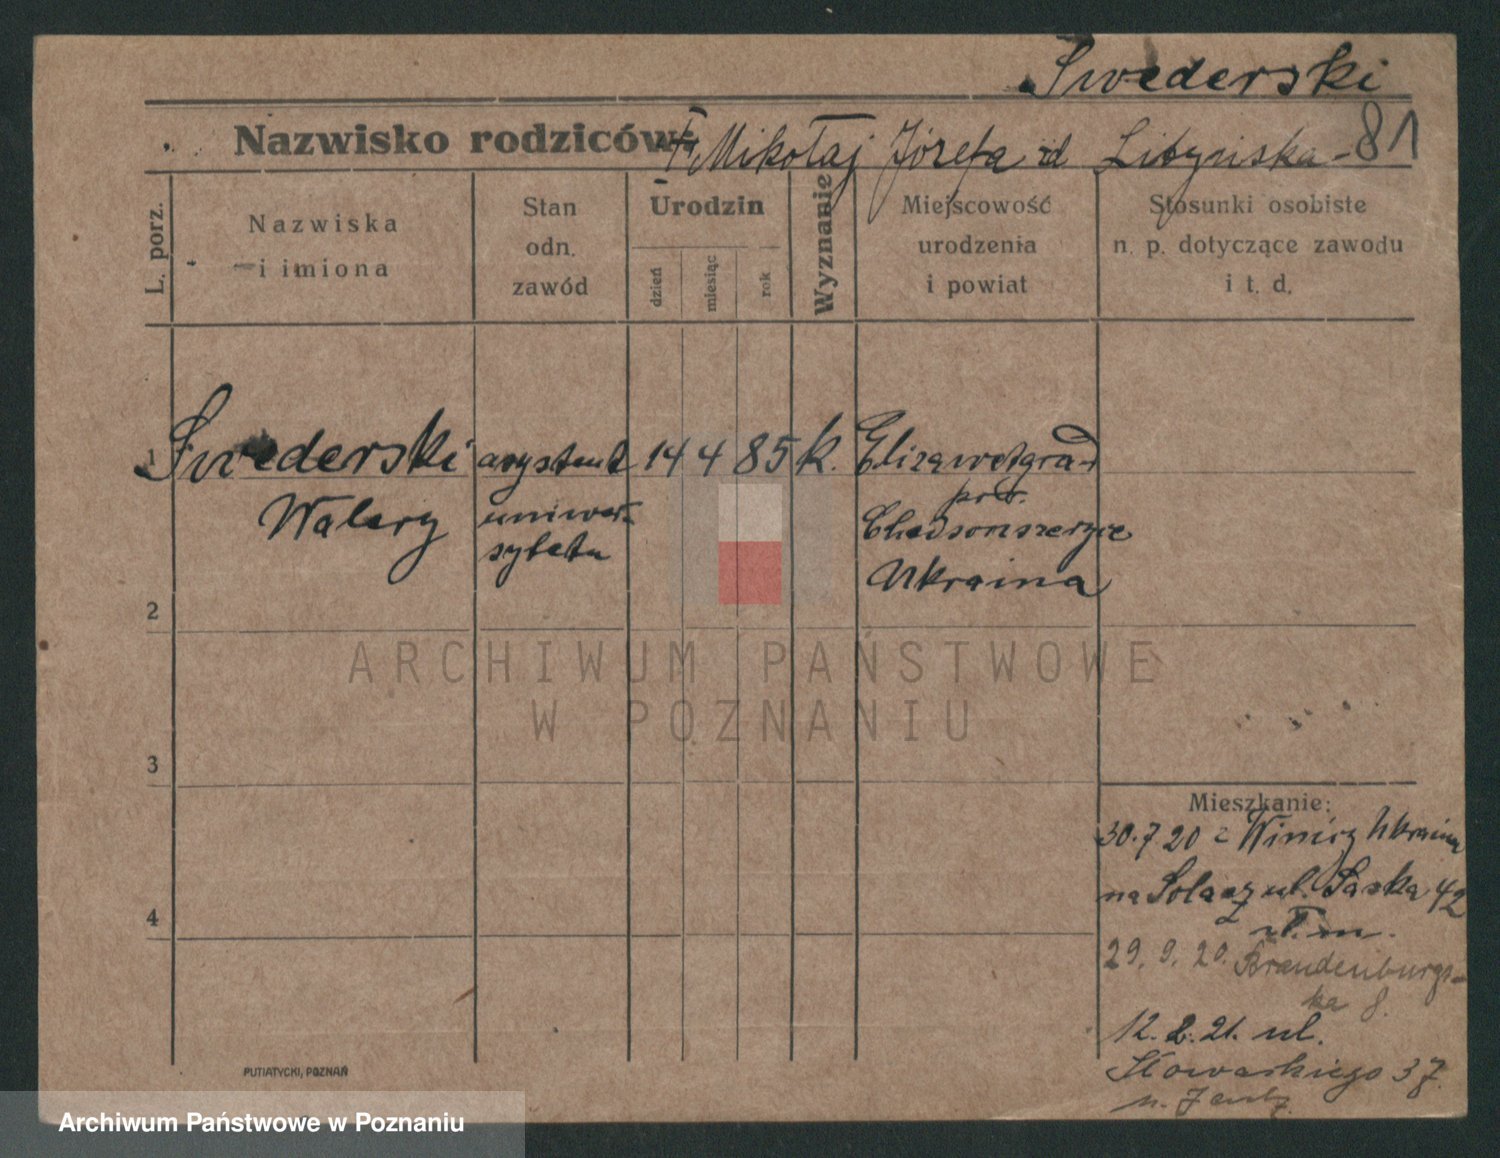 Swederski
Nazwisko rodziców: Mikołaj Józefa zd Libyńska - 81
L. porz.
Nazwiska
i imiona
Stan
odn.
zawód
Urodzin
dzień
miesiąc
rok
Wyznanie
Miejscowość
urodzenia
i powiat
Stosunki osobiste
n. p. dotyczące zawodu
i t. d.
1 Swederski asystent 14 4 85 k. Elizawetgrad
Walery uniwer-
sytetu
Ukraina
2
3
4
Mieszkanie:
30.7 20 z Ukraina
na Solacz ul. Saska 42
29. 9. 20. Brandenburgs-
ka 8.
12. 2. 21. ul.
Słowackiego 37
PUTIATYCKI, POZNAŃ
ARCHIWUM PAŃSTWOWE
W POZNANIU
Archiwum Państwowe w Poznaniu